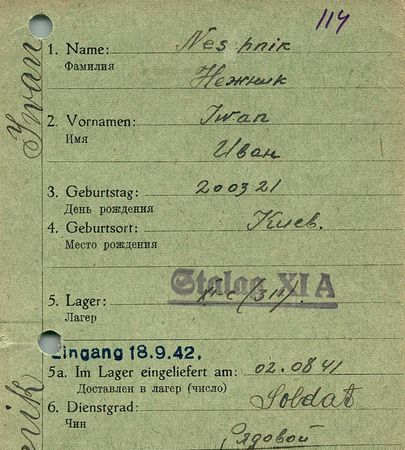 114
1. Name: Neshnik
Фамилия
Нежник
2. Vornamen: Iwan
Имя
Иван
3. Geburtstag: 200321
День рождения
4. Geburtsort: Киев.
Место рождения
Stalag XI A
5. Lager: XI-C (311).
Лагер
Eingang 18.9.42.
5a. Im Lager eingeliefert am: 02.08 41
Доставлен в лагер (число)
6. Dienstgrad: Soldat
Чин
Рядовой
Iwan